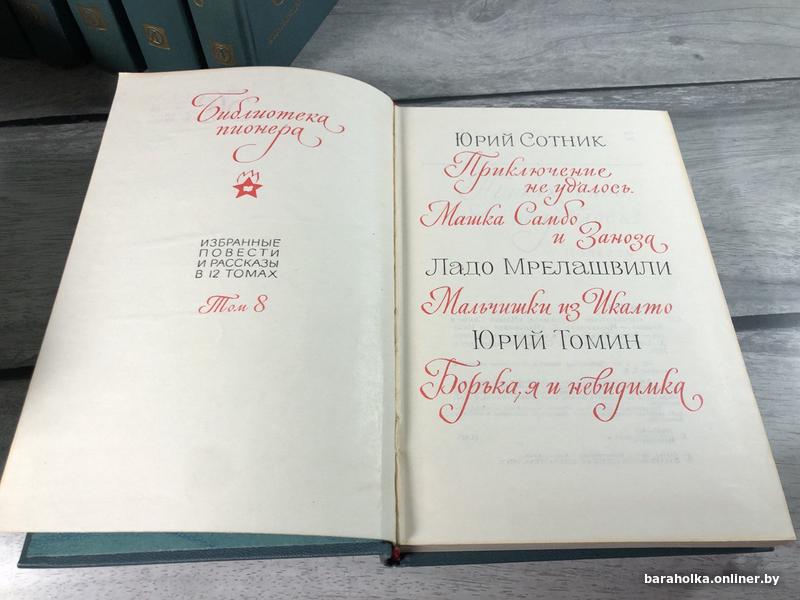 Библиотека
пионера
ИЗБРАННЫЕ
ПОВЕСТИ
И РАССКАЗЫ
В 12 ТОМАХ
Том 8
Юрий Сотник
Приключение
не удалось.
Машка Самбо
и Заноза
Ладо Мрелашвили
Мальчишки из Икалто
Юрий Томин
Борька, я и невидимка
baraholka.onliner.by